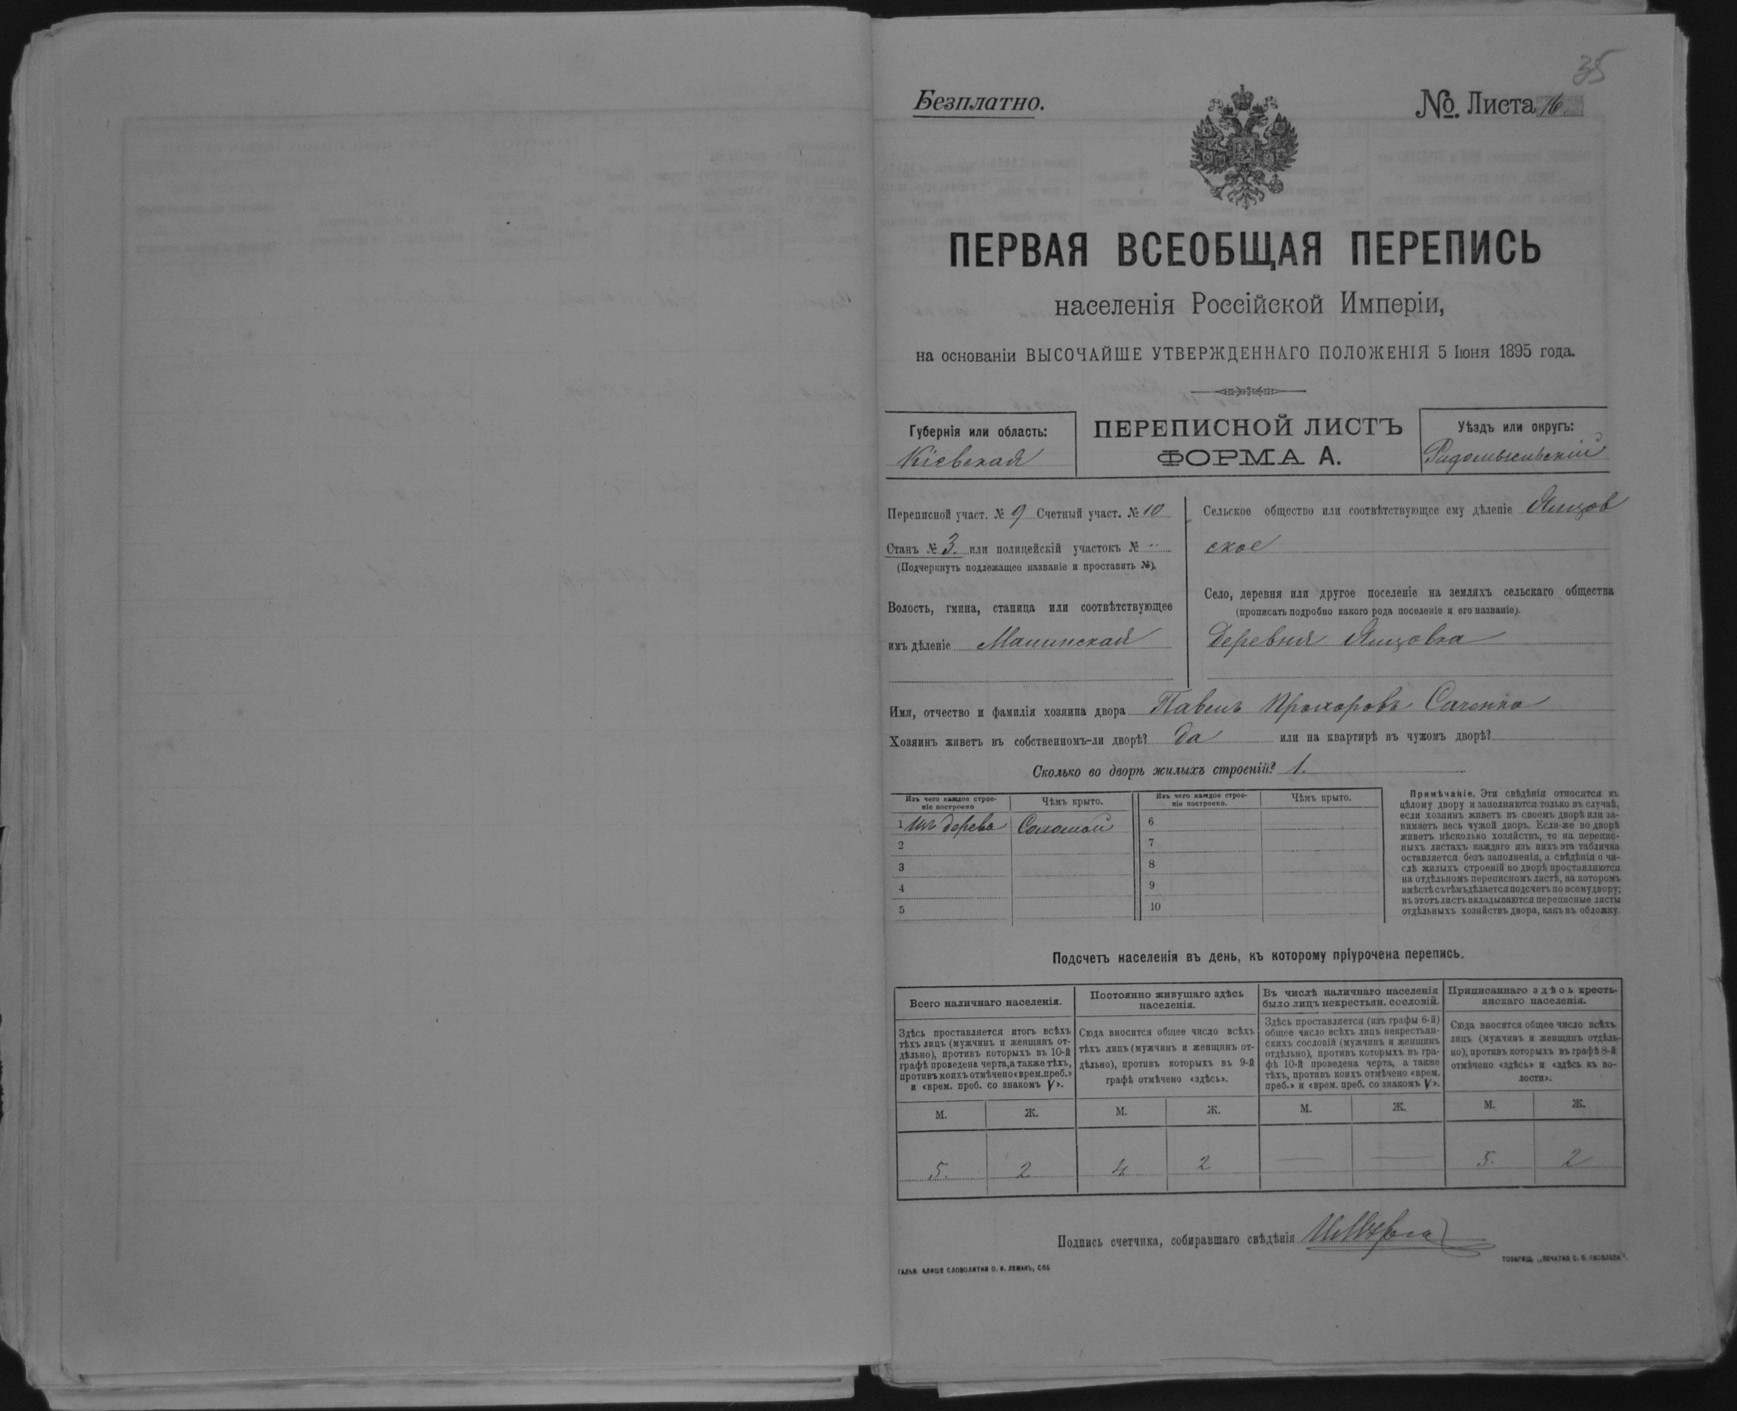 35
Безплатно.
№. Листа 16.
ПЕРВАЯ ВСЕОБЩАЯ ПЕРЕПИСЬ
населенія Россійской Имперіи,
на основаніи ВЫСОЧАЙШЕ УТВЕРЖДЕННАГО ПОЛОЖЕНІЯ 5 Іюня 1895 года.
Губернія или область:
Кіевская
ПЕРЕПИСНОЙ ЛИСТЪ
ФОРМА А.
Уѣздъ или округъ:
Радомысльскій
Переписной участ. № 9 Счетный участ. № 10
Станъ № 3. или полицейскій участокъ № --
(Подчеркнуть подлежащее названіе и проставить №).
Волость, гмина, станица или соотвѣтствующее
имъ дѣленіе Малинская
Сельское общество или соотвѣтствующее ему дѣленіе Ялцов
ское
Село, деревня или другое поселеніе на земляхъ сельскаго общества
(прописать подробно какого рода поселеніе и его названіе).
Деревня Ялцовка
Имя, отчество и фамилія хозяина двора Павелъ Прохоровъ Саченко
Хозяинъ живетъ въ собственномъ-ли дворѣ? Да или на квартирѣ въ чужомъ дворѣ?
Сколько во дворѣ жилыхъ строеній? 1.
Изъ чего каждое строе-
ніе построено
Чѣмъ крыто.
Изъ чего каждое строе-
ніе построено.
Чѣмъ крыто.
1 изъ дерева Соломой 6
2 7
3 8
4 9
5 10
Примѣчаніе. Эти свѣдѣнія относятся къ
цѣлому двору и заполняются только въ случаѣ,
если хозяинъ живетъ въ своемъ дворѣ или за-
нимаетъ весь чужой дворъ. Если-же во дворѣ
живетъ нѣсколько хозяйствъ, то на перепис-
ныхъ листахъ каждаго изъ нихъ эта табличка
оставляется безъ заполненія, а свѣдѣнія о чи-
слѣ жилыхъ строеній во дворѣ проставляются
на отдѣльномъ переписномъ листѣ, на которомъ
вмѣстѣ съ тѣмъ дѣлается подсчетъ по всему двору;
въ этотъ листъ вкладываются переписные листы
отдѣльныхъ хозяйствъ двора, какъ въ обложку.
Подсчетъ населенія въ день, къ которому пріурочена перепись.
Всего наличнаго населенія.
Постоянно живущаго здѣсь
населенія.
Въ числѣ наличнаго населенія
было лицъ некрестьян. сословій.
Приписаннаго здѣсь кресть-
янскаго населенія.
Здѣсь проставляется итогъ всѣхъ
тѣхъ лицъ (мужчинъ и женщинъ от-
дѣльно), противъ которыхъ въ 10-й
графѣ проведена черта, а также тѣхъ,
противъ коихъ отмѣчено «врем. преб.»
и «врем. преб. со знакомъ V».
Сюда вносится общее число всѣхъ
тѣхъ лицъ (мужчинъ и женщинъ от-
дѣльно), противъ которыхъ въ 9-й
графѣ отмѣчено «здѣсь».
Здѣсь проставляется (изъ графы 6-й)
общее число всѣхъ лицъ некрестьян-
скихъ сословій (мужчинъ и женщинъ
отдѣльно), противъ которыхъ въ гра-
фѣ 10-й проведена черта, а также
тѣхъ, противъ коихъ отмѣчено «врем.
преб.» и «врем. преб. со знакомъ V».
Сюда вносится общее число всѣхъ
лицъ (мужчинъ и женщинъ отдѣль-
но), противъ которыхъ въ графѣ 8-й
отмѣчено «здѣсь» и «здѣсь въ во-
лости».
М. Ж. М. Ж. М. Ж. М. Ж.
5. 2 4 2 — — 5. 2
Подпись счетчика, собиравшаго свѣдѣнія
ГАЛЬВ. КЛИШЕ СЛОВОЛИТНИ О. И. ЛЕМАНЪ, СПБ
ТОВАРИЩ. „ПЕЧАТНЯ С. П. ЯКОВЛЕВА".